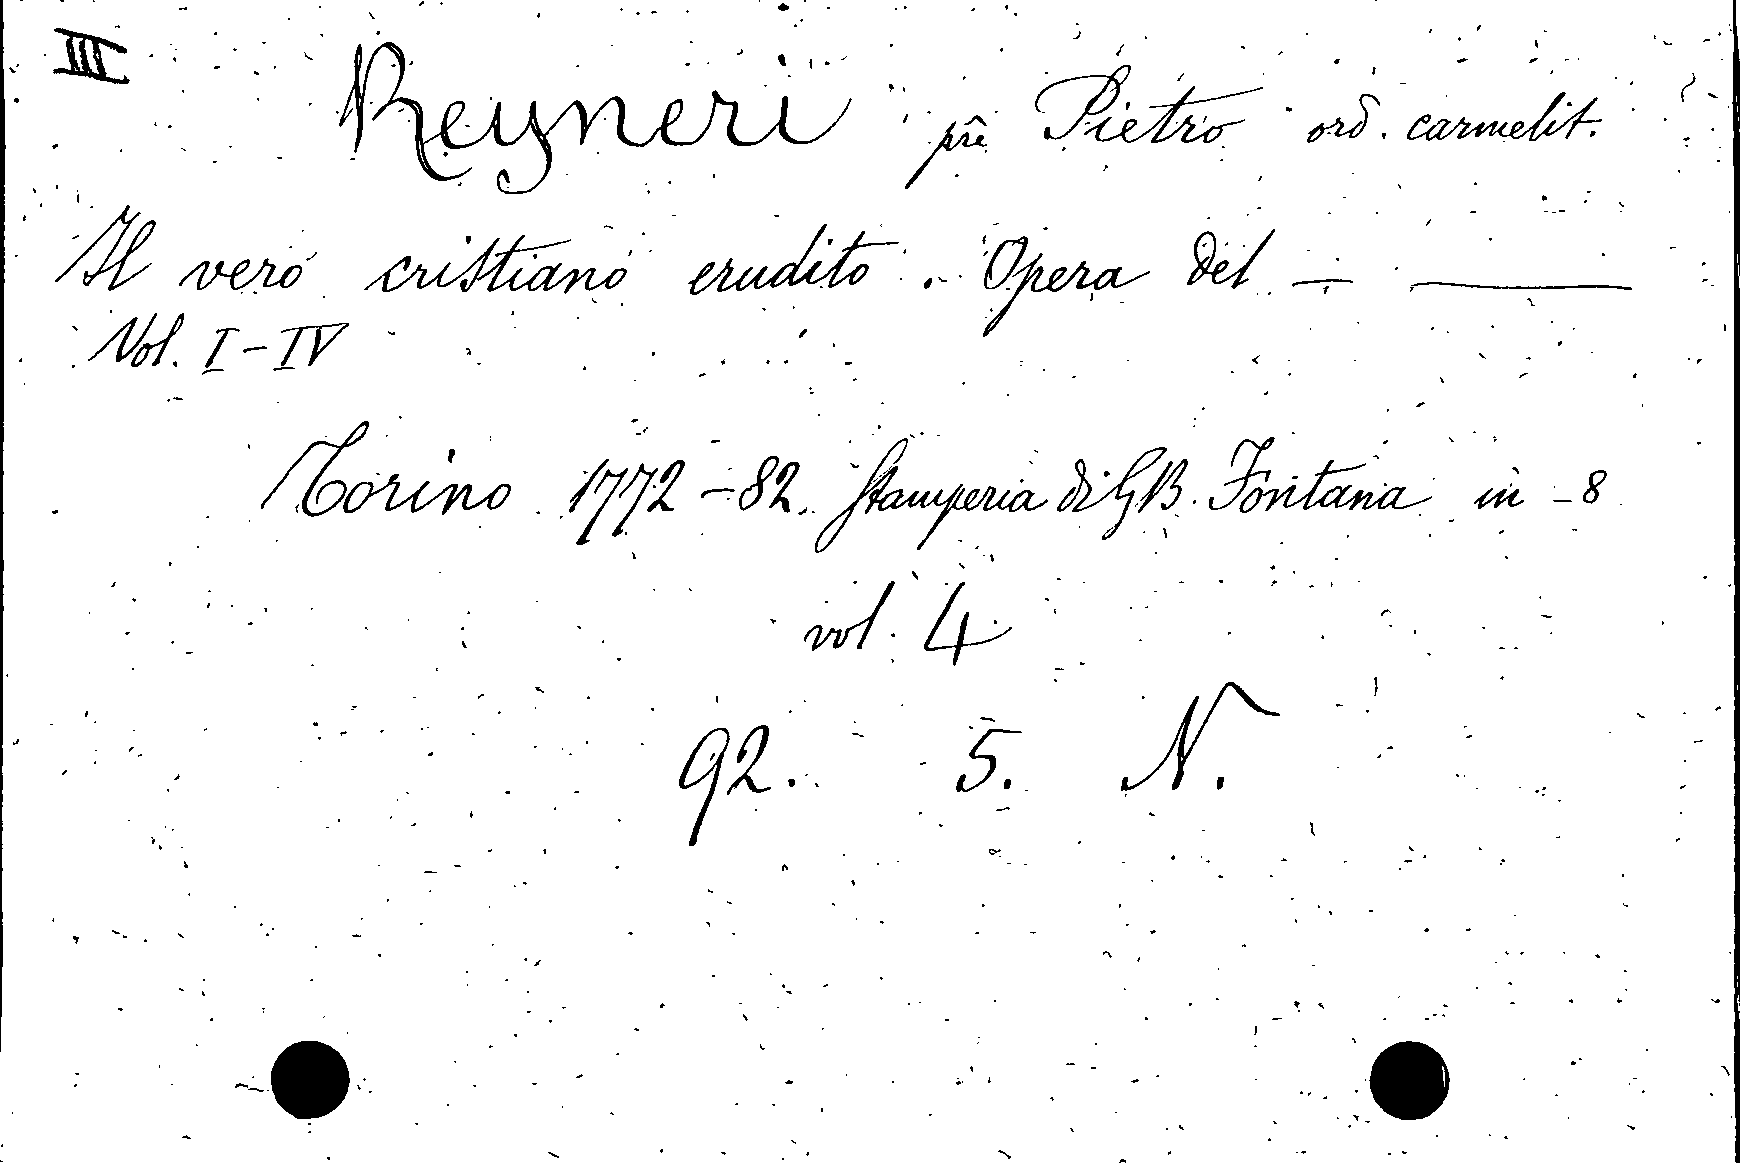 III
Reyneri prê Pietro ord. carmelit.
Il vero cristiano erudito. Opera del — ———
Vol. I-IV
Torino 1772-82. Stamperia di G.B. Fontana in -8
vol. 4
92. 5. N.